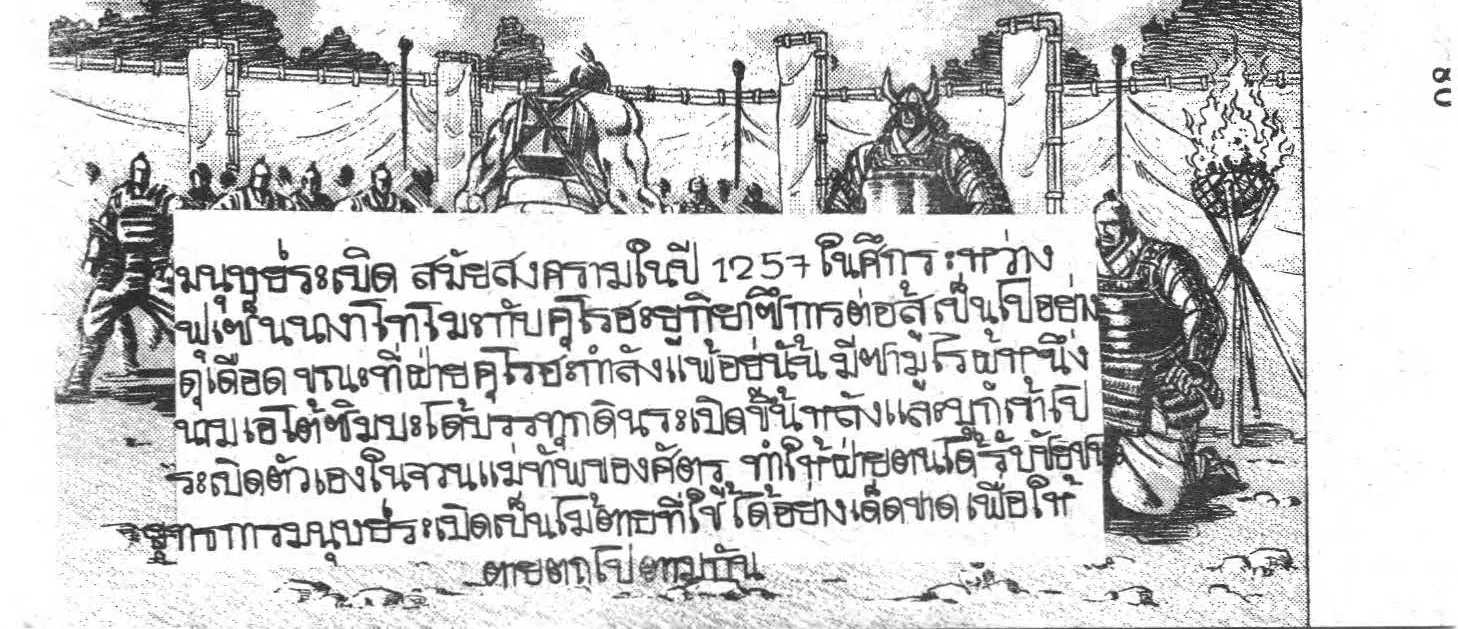 มนุษย์ระเบิด สมัยสงครามในปี 1257 ในศึกระหว่าง
ฟูเซ็นนางาโทโมะกับคุโรฮะยูกิยาซึการต่อสู้เป็นไปอย่าง
ดุเดือด ขณะที่ฝ่ายคุโรฮะกำลังแพ้อยู่นั้น มีซามูไรผู้หนึ่ง
นามเอโต้ซิมบะได้บรรทุกดินระเบิดขึ้นหลังและบุกเข้าไป
ระเบิดตัวเองในจวนแม่ทัพของศัตรู ทำให้ฝ่ายตนได้รับชัยชนะ
ยุทธการมนุษย์ระเบิดเป็นไม้ตายที่ใช้ได้อย่างเด็ดขาด เพื่อให้
ตายตกไปตามกัน
80